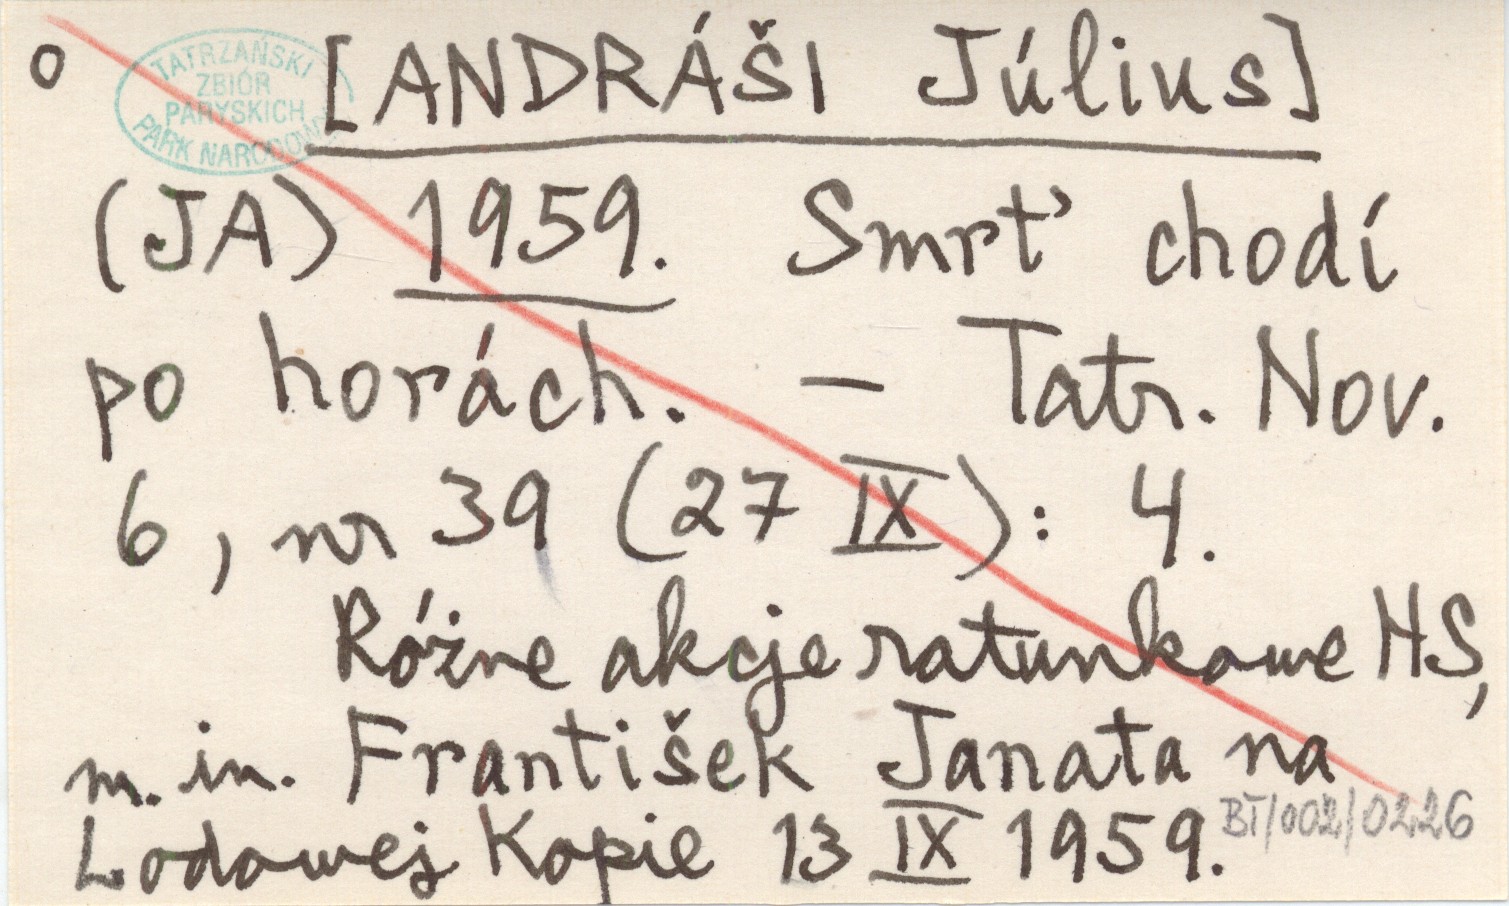 o [ANDRÁŠI Július]
TATRZAŃSKI
ZBIÓR
PARYSKICH
PARK NARODOWY
(JA) 1959. Smrť chodí
po horách. — Tatr. Nov.
6, nr 39 (27 IX): 4.
Różne akcje ratunkowe HS,
m. in. František Janata na
Lodowej Kopie 13 IX 1959.
BT/002/0226